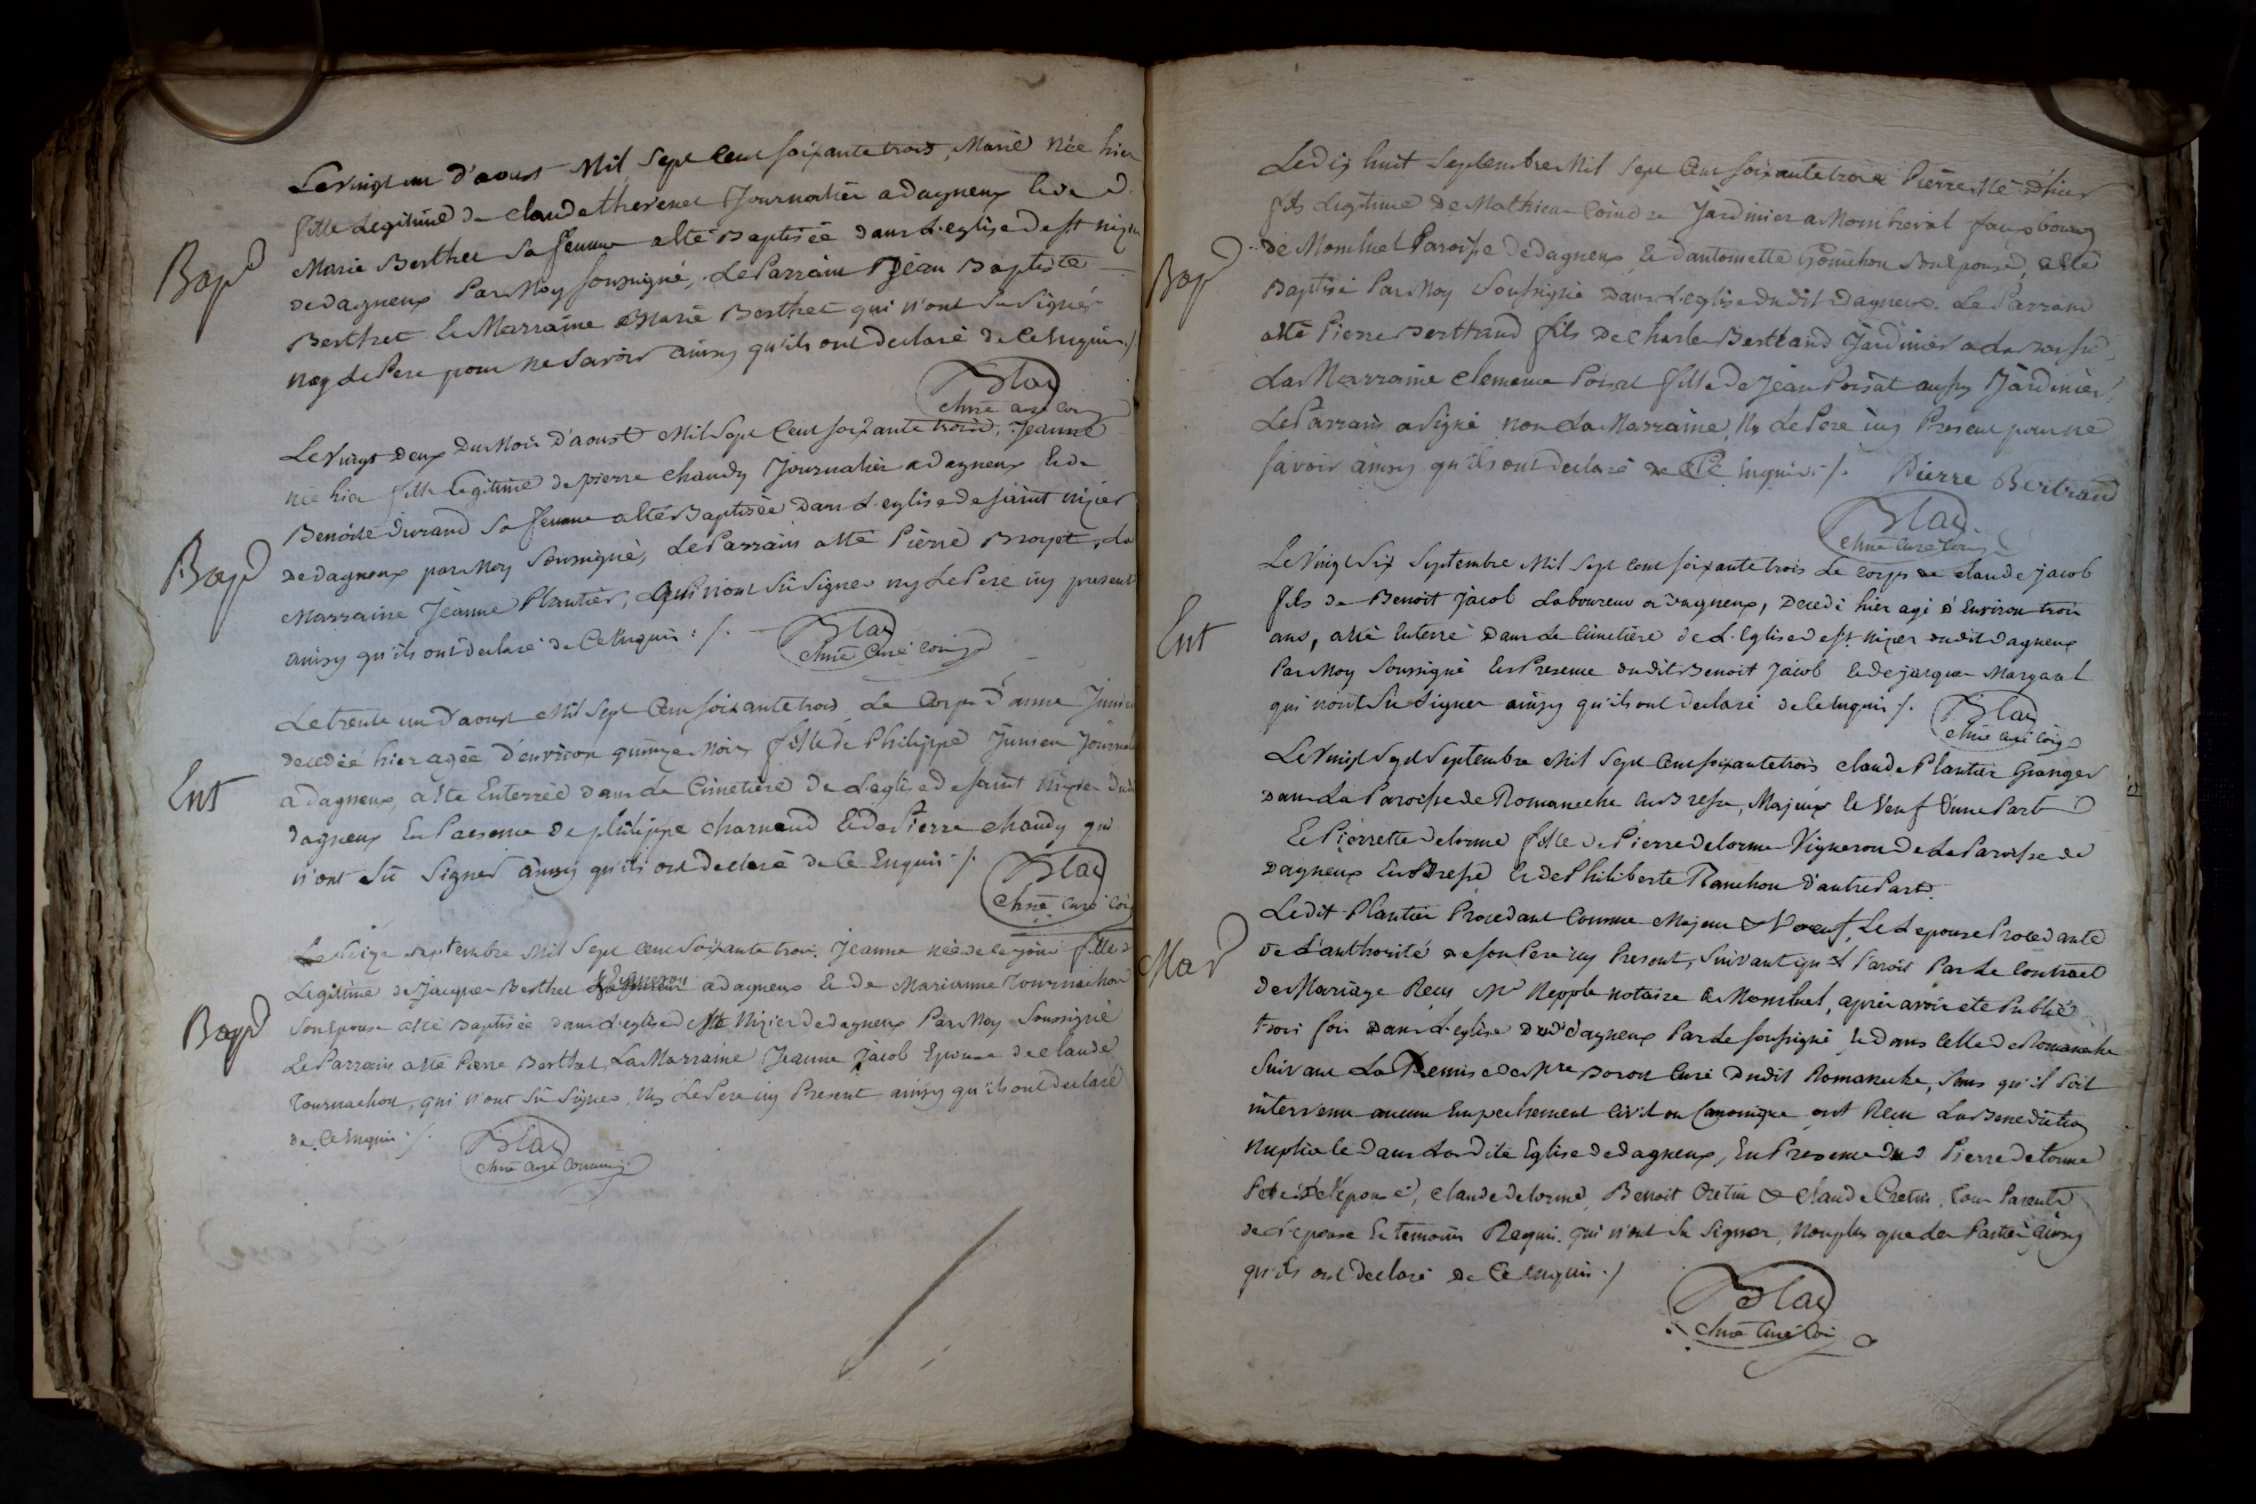 Le vingt un d'aoust Mil Sept Cent soixante trois, Marie née hier
fille Légitime de Claude thevenet Journalier a dagneux et de
Marie Berthet sa femme a été Baptisée dans L'eglise de st nizier
Bap
de dagneux Par Moy soussigné, Le Parrain Jean Baptiste
Berthet et Marraine Marie Berthet qui n'ont su signer
ny Le Pere pour ne savoir ainsy qu'ils ont declaré de ce enquis ./.
Blay
chne curé com
Le vingt deux du Mois d'aoust Mil Sept Cent soixante trois, Jeanne
née hier fille Legitime de pierre chaudy Journalier a dagneux et de
Benoite durand sa femme a été Baptisée dans L'eglise de saint nizier
Bap
de dagneux par Moy soussigné, Le Parrain a été Pierre Broyet, La
Marraine Jeanne Plantier, qui n'ont su signer ny Le Pere icy present
ainsy qu'ils ont declaré de ce enquis ./.
Blay
chne curé com
Le trente un d'aoust Mil Sept Cent soixante trois Le Corps d'anne
decedée hier agée d'environ quinze Mois fille de Philippe
Ent
a dagneux, a été Enterrée dans Le Cimetiere de L'eglise de saint nizier dudit
dagneux En Presence de philippe charnaud et de Pierre chaudy qui
n'ont sû signer ainsy qu'ils ont declaré de Ce Enquis ./.
Blay
chne curé com
Le seize septembre Mil Sept cent soixante trois Jeanne née de ce jour fille
Legitime de Jacques Berthet a dagneux et de Marianne Tournachon
Bap
son epouse a été Baptisée dans L'eglise de st Nizier de dagneux Par Moy soussigné
Le Parrain a été Pierre Berthet, La Marraine Jeanne Jacob Epouse de claude
Tournachon, qui n'ont sû signer, ny Le Pere icy Present ainsy qu'ils ont declaré
de Ce enquis ./.
Blay
chne curé commis
Le dix huit septembre Mil Sept Cent soixante trois Pierre né d'hier
fils Legitime de Mathieu Jardinier a fauxbourg
Bap
de Montluel Paroisse de dagneux, et d'antoinette son epouse, a été
Baptisé Par Moy soussigné dans L'eglise dudit dagneux. Le Parrain
a été Pierre Berttrand fils de Charle Berttrand Jardinier
La Marraine clemence Poisat fille de Jean Poisat aussy Jardinier,
Le Parrain a signé non La Marraine, Ny Le Pere icy Present pour ne
savoir ainsy qu'ils ont declaré de Ce enquis ./. Pierre Bertrand
Blay
chne curé com
Le vingt Six Septembre Mil Sept Cent soixante trois Le corps de claude jacob
fils de Benoit jacob Laboureur a dagneux, Decedé hier agé d'Environ trois
Ent
ans, a été Enterré dans Le Cimetiere de L'Eglise de st nizier dudit dagneux
Par Moy Soussigné En Presence dudit Benoit jacob et de jacque
qui n'ont su signer ainsy qu'ils ont declaré de Ce enquis ./.
Blay
chne curé com
Le vingt Sept Septembre Mil Sept Cent soixante trois claude Plantier Granger
dans La Paroisse de Romaneche en Bresse, Majeur et Veuf d'une Part
Et Pierrette delorme fille de Pierre delorme Vigneron de La Paroisse de
Dagneux En Bresse et de Philiberte Ranchon d'autre Part
Ledit Plantier Procedant Comme Majeur & veuf, Et L'epouse Procedante
Mar
de L'authorité de son Pere icy Present, Suivant qu'il Paroit Par Le Contract
de Mariage Recu Me Nepple notaire a Montluel, après avoir été Publié
trois fois dans L'eglise dud dagneux Par Le soussigné, Et dans Celle de Romaneche
Suivant La Remise de Mre Curé Dudit Romaneche, sans qu'il soit
intervenu aucun Empechement Civil ou Canonique ont Recu La Benediction
Nuptiale dans Ladite Eglise de dagneux, En Presence dud Pierre delorme
Pere de L'epouse, claude delorme, Benoit Cretin & claude Cretin, tous Parents
de L'epouse Et temoins Requis, qui n'ont su signer, Nonplus que les Parties ainsy
qu'ils ont declaré de Ce enquis ./.
Blay
chne curé Com